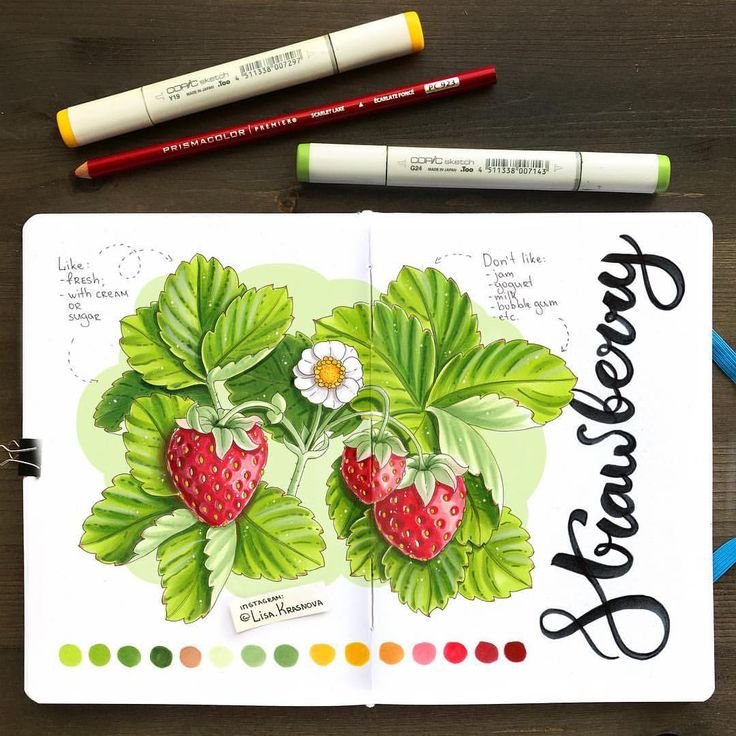 COPIC sketch
Y19 MADE IN JAPAN .Too 4 511338 007297
PRISMACOLOR PREMIER® SCARLET LAKE ÉCARLATE FONCÉ PC 923
COPIC sketch
G24 MADE IN JAPAN .Too 4 511338 007143
Like:
- FRESH;
- with CREAM
OR
sugar
Don't like:
- jam
- yogurt
- milk
- bubble gum
- etc.
Strawberry
INSTAGRAM:
@LISA.KRASNOVA